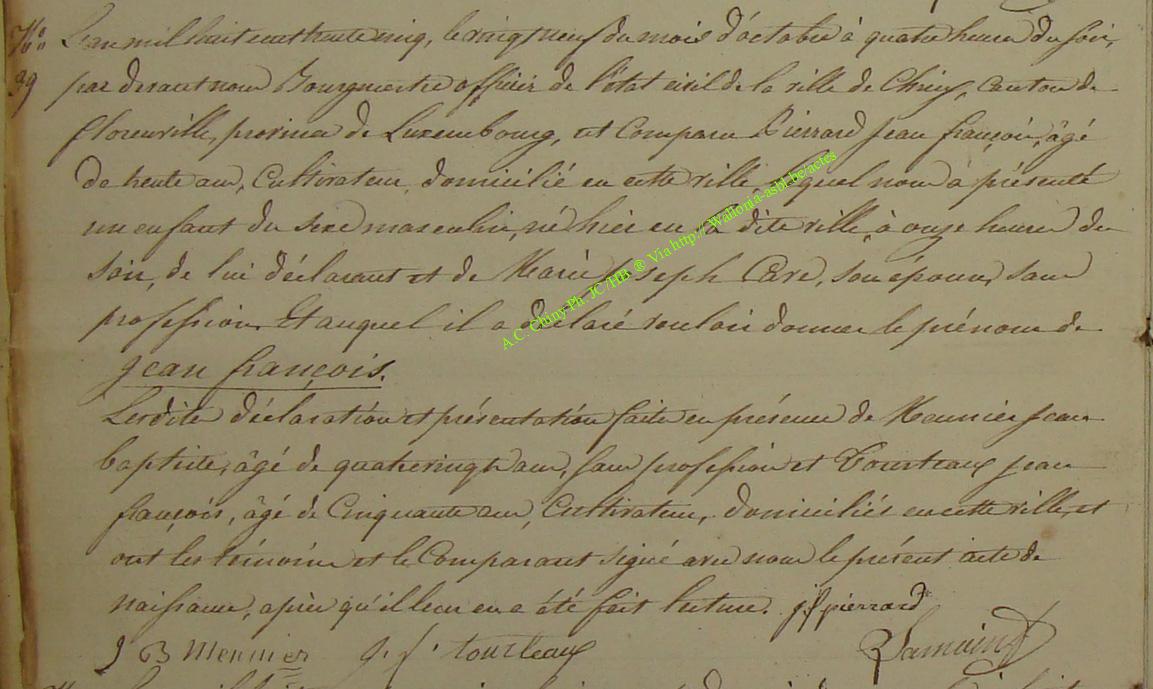 N.o L'an mil huit cent trente cinq, le vingt neuf du mois d'octobre à quatre heures du soir,
29 par devant nous Bourgmestre officier de l'état civil de la ville de Chiny, canton de
florenville, province de Luxembourg, est comparu Pierrard jean françois, âgé
de trente ans, Cultivateur, domicilié en cette ville, lequel nous a présenté
un enfant du sexe masculin, né hier en la dite ville, à onze heures du
soir, de lui déclarant et de Marie Joseph Cave, son épouse, sans
profession. Et auquel il a déclaré vouloir donner le prénom de
jean françois.
Lesdites déclaration et présentation faites en présence de Meunier jean
baptiste, âgé de quatrevingts ans, sans profession et Tourteaux jean
françois, âgé de Cinquante ans, Cultivateur, domiciliés en cette ville, et
ont les témoins et le Comparant signé avec nous le présent acte de
naissance, après qu'il leur en a été fait lecture. jf pierrard
J B Meunier J. f. tourteaux Lamain
A.C. Chiny Ph. JC/HB ® Via http://Wallonia-asbl.be/actes